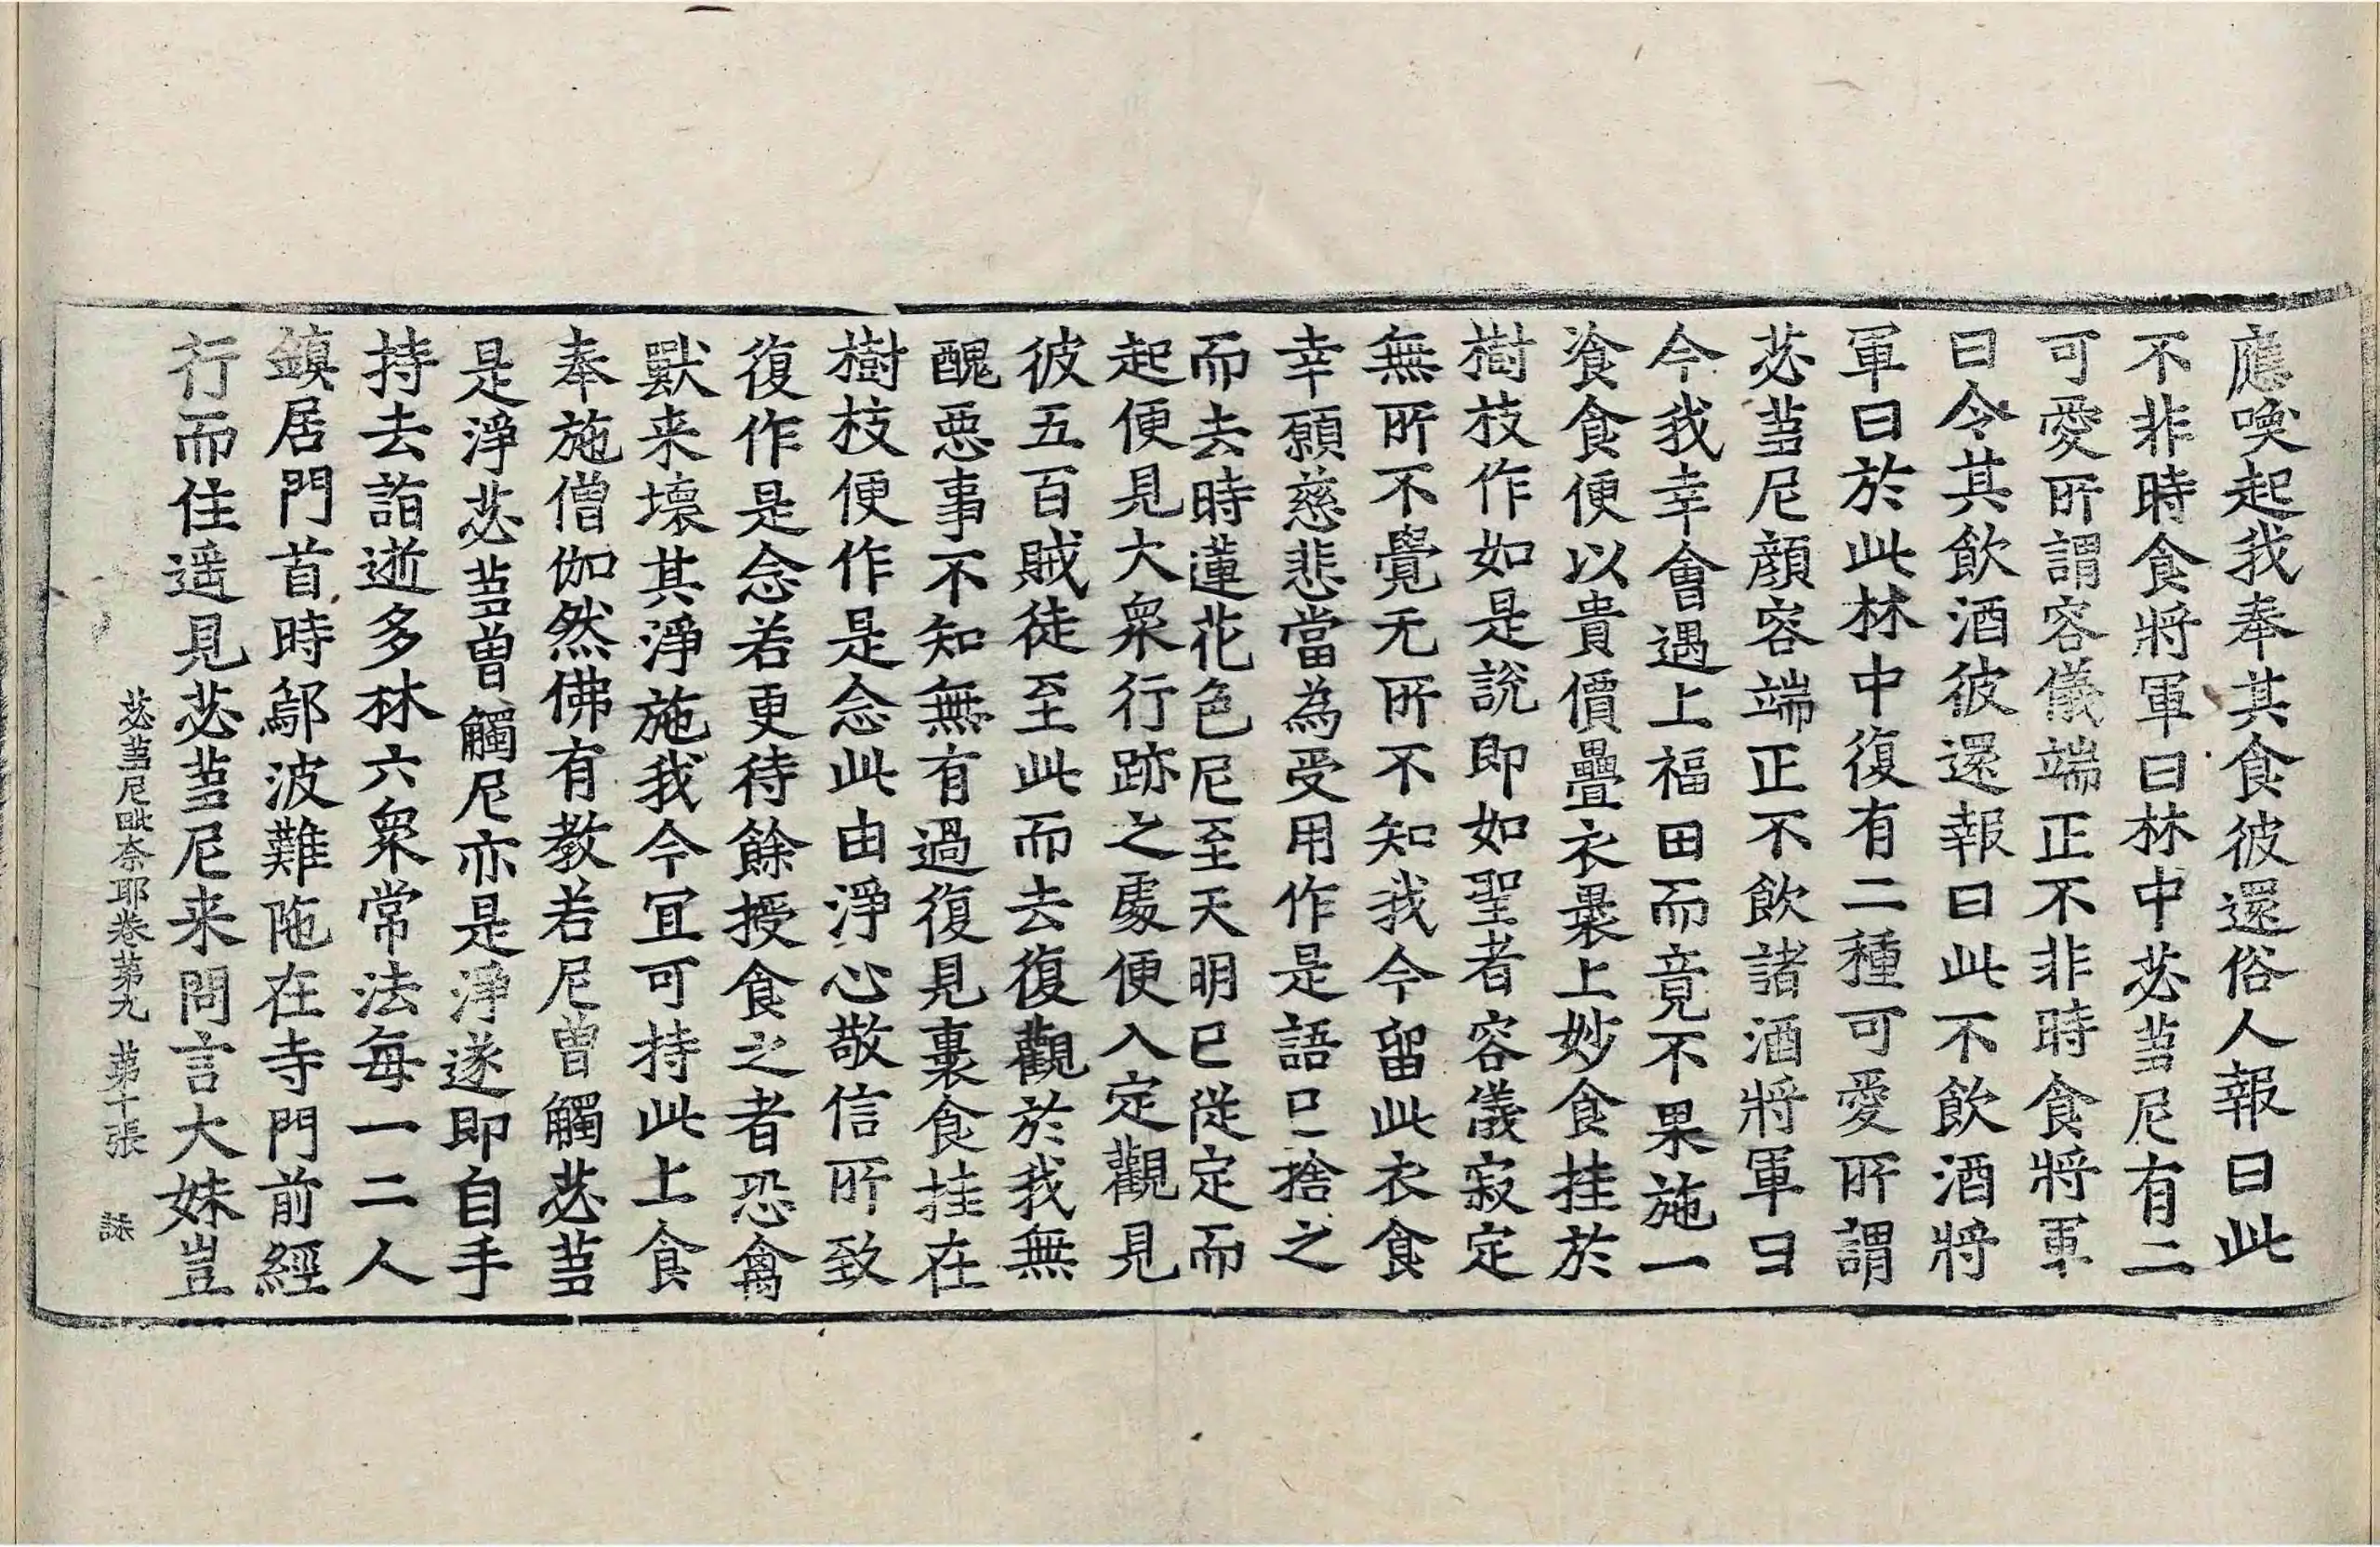 應喚起我奉其食彼還俗人報曰此
不非時食將軍曰林中苾蒭尼有二
可愛所謂容儀端正不非時食將軍
曰令其飲酒彼還報曰此不飲酒將
軍曰於此林中復有二種可愛所謂
苾蒭尼顔容端正不飲諸酒將軍曰
今我幸會遇上福田而竟不果施一
飡食便以貴價疊衣裹上妙食挂於
樹枝作如是說即如聖者容儀寂定
無所不覺无所不知我今留此衣食
幸願慈悲當為受用作是語已捨之
而去時蓮花色尼至天明已從定而
起便見大衆行跡之處便入定觀見
彼五百賊徒至此而去復觀於我無
醜惡事不知無有過復見裹食挂在
樹枝便作是念此由淨心敬信所致
復作是念若更待餘授食之者恐禽
獸来壞其淨施我今宜可持此上食
奉施僧伽然佛有教若尼曽觸苾蒭
是淨苾蒭曽觸尼亦是淨遂即自手
持去詣逝多林六衆常法每一二人
鎮居門首時鄔波難陁在寺門前經
行而住遥見苾蒭尼来問言大妹豈
苾蒭尼毗奈耶卷第九 第十張 詠